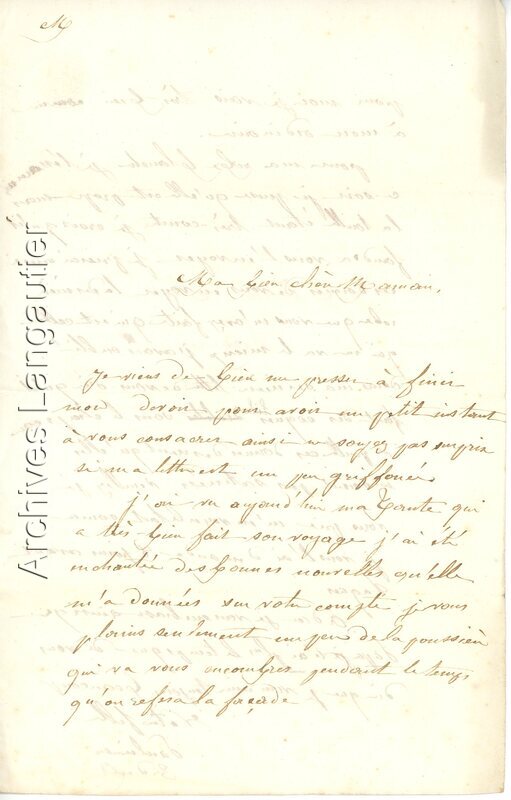 M
Archives Langautier
Ma bien chère Maman,
Je viens de bien me presser à finir
mon devoir pour avoir un petit instant
à vous consacrer ainsi ne soyez pas surpris
si ma lettre est un peu griffonée
j'ai vu aujourd'hui ma Tante qui
a très bien fait son voyage j'ai été
enchantée des bonnes nouvelles qu'elle
m'a données sur votre compte je vous
plains seulement un peu de la poussière
qui va vous encombrer pendant le temps
qu'on refera la façade